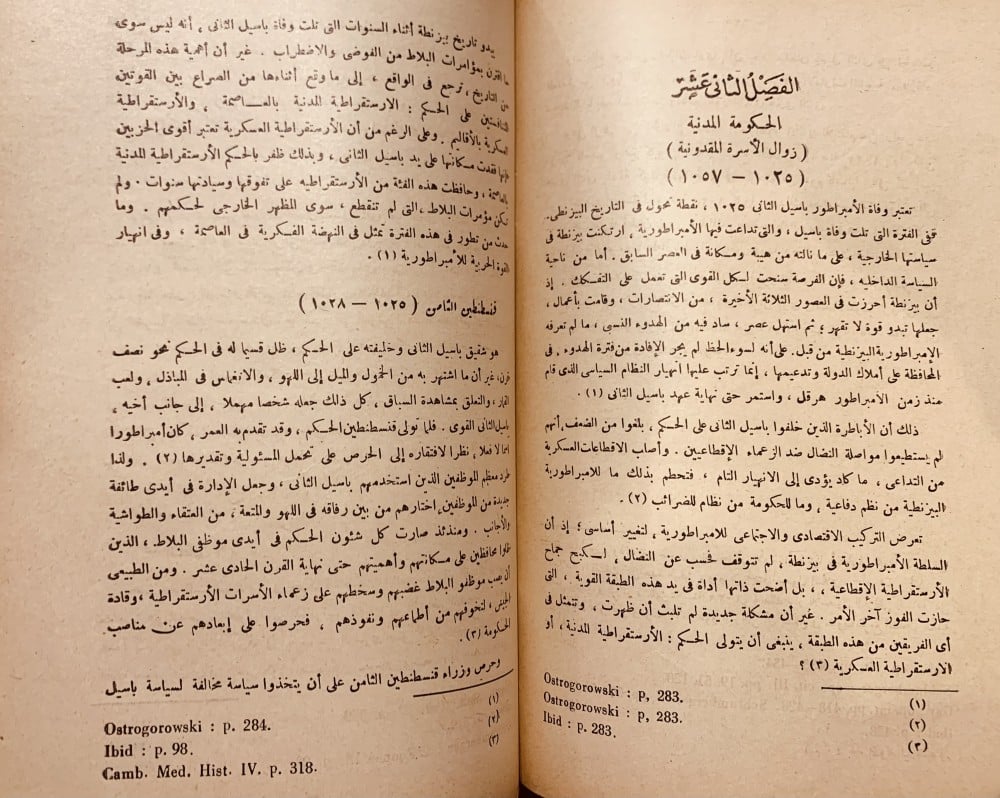 الفَصْلُ الثَّانِي عَشَر
الحكومة المدنية
( زوال الأسرة المقدونية )
( ١٠٢٥ – ١٠٥٧ )
تعتبر وفاة الأمبراطور باسيل الثانى ١٠٢٥ ، نقطة تحول فى التاريخ البيزنطى.
فنى الفترة التى تلت وفاة باسيل ، والتى تداعت فيها الأمبراطورية ، ارتكنت بيزنطة فى
سياستها الخارجية ، على ما نالته من هيبة ومكانة فى العصر السابق . أما من ناحية
السياسة الداخليه ، فإن الفرصة سنحت لسكل القوى التى تعمل على التفسكك . إذ
أن بيزنطة أحرزت فى العصور الثلاثة الأخيرة ، من الانتصارات ، وقامت بأعمال ،
جعلها تبدو قوة لا تقهر ؛ ثم استهل عصر ، ساد فيه من الهدوء النسى ، ما لم تعرفه
الإمبراطورية البيزنطية من قبل . على أنه لسوء الحظ لم يجر الإفادة من فترة الهدوء . فى
المحافظة على أملاك الدولة وتدعيمها ، إنما ترتب عليها انهيار النظام السياسى الذى قام
منذ زمن الامبراطور هرقل ، واستمر حتى نهاية عهد باسيل الثانى (١) .
ذلك أن الأباطرة الذين خلفوا باسيل الثانى على الحسكم ، بلغوا من الضعف أنهم
لم يستطيعوا مواصلة النضال ضد الزعماء الإقطاعيين . وأصاب الاقطاعات العسكرية
من التداعى ، ما كاد يؤدى إلى الانهيار التام ، فتحطم بذلك ما للامبراطورية
البيزنطية من نظم دفاعية ، وما للحكومة من نظام للضرائب (٢) .
تعرض التركيب الاقتصادى والاجتماعى للامبراطورية ، لتغيير أساسى ؛ إذ أن
السلطة الأمبراطورية فى بيزنطة ، لم تتوقف فحسب عن النضال ، اسكبح جماح
الأرستقراطية الاقطاعية ، ، بل أضحت ذاتها أداة فى يد هذه الطبقة القوية ، التى
حازت الفوز آخر الأمر . غير أن مشكلة جديدة لم تلبث أن ظهرت ، وتتمثل فى
أى الفريقين من هذه الطبقة ، ينبغى أن يتولى الحسكم : الأرستقراطية المدنية ، أو
الارستقراطية العسكرية (٣) ؟
(١) Ostrogorowski : p, 283.
(٢) Ostrogorowski : p, 283.
(٣) Ibid : p. 283.
يبدو تاريخ بيزنطة أثناء السنوات التى تلت وفاة باسيل الثانى ، أنه ليس سوى
اقترن بمؤامرات البلاط من الفوضى والاضطراب . غير أن أهمية هذه المرحلة
التاريخ ، ترجع فى الواقع ، إلى ما وقع أثناءها من الصراع بين القوتين
المتنافستين على الحسكم : الارستقراطية المدنية بالعاصمة ، والأرستقراطية
العسكرية بالأقاليم . وعلى الرغم من أن الأرستقراطية العسكرية تعتبر أقوى الحزبين
فإنها فقدت مسكانتها على يد باسيل الثانى ، وبذلك ظفر بالحسكم الأرستقراطية المدنية
بالعاصمة ، وحافظت هذه الفئة من الأرستقراطيه على تفوقها وسيادتها سنوات . ولم
تسكن مؤمرات البلاط ، التى لم تنقطع ، سوى المظهر الخارجى لحسكمهم . وما
حدث من تطور فى هذه الفترة تمثل فى النهضة الفسكرية فى العاصمة ، وفى انهيار
القوة الحربية للأمبراطورية (١) .
قنسطنطين الثامن ( ١٠٢٥ – ١٠٢٨ )
هو شقيق باسيل الثانى وخليفته على الحسكم ، ظل قسيما له فى الحسكم نحو نصف
قرن ، غير أن ما اشتهر به من الخمول والميل إلى اللهو ، والانغماس فى المباذل ، ولعب
القمار ، والتعلق بمشاهدة السباق ، كل ذلك جعله شخصا مهملا ، إلى جانب أخيه ،
باسيل الثانى القوى . فلما تولى قنسطنطين الحسكم ، وقد تقدم به العمر ، كان أمبراطورا
اسما لا فعلا ، نظرا لافتقاره إلى الحرص على تحمل المسئولية وتقديرها (٢) . ولذا
طرد معظم الموظفين الذين استخدمهم باسيل الثانى ، وجعل الإدارة فى أيدى طائفة
جديدة من الموظفين ، اختارهم من بين رفاقه فى اللهو والمتعة ، من العتقاء والطواشية
والأجانب . ومنذئذ صارت كل شئون الحسكم فى أيدى موظفى البلاط ، الذين
ظلوا محافظين على مسكانتهم وأهميتهم حتى نهاية القرن الحادى عشر . ومن الطبيعى
أن يصب موظفو البلاط غضبهم وسخطهم على زعماء الأسرات الأرستقراطية ، وقادة
الجيش ، لتخوفهم من أطماعهم ونفوذهم ، فحرصوا على إبعادهم عن مناصب
الحكومة (٣) .
وحرص وزراء قنسطنطين الثامن على أن يتخذوا سياسة مخالفة لسياسة باسيل
(١) Ostrogorowski : p. 284.
(٢) Ibid : p. 98.
(٣) Camb. Med. Hist. IV. p. 318.